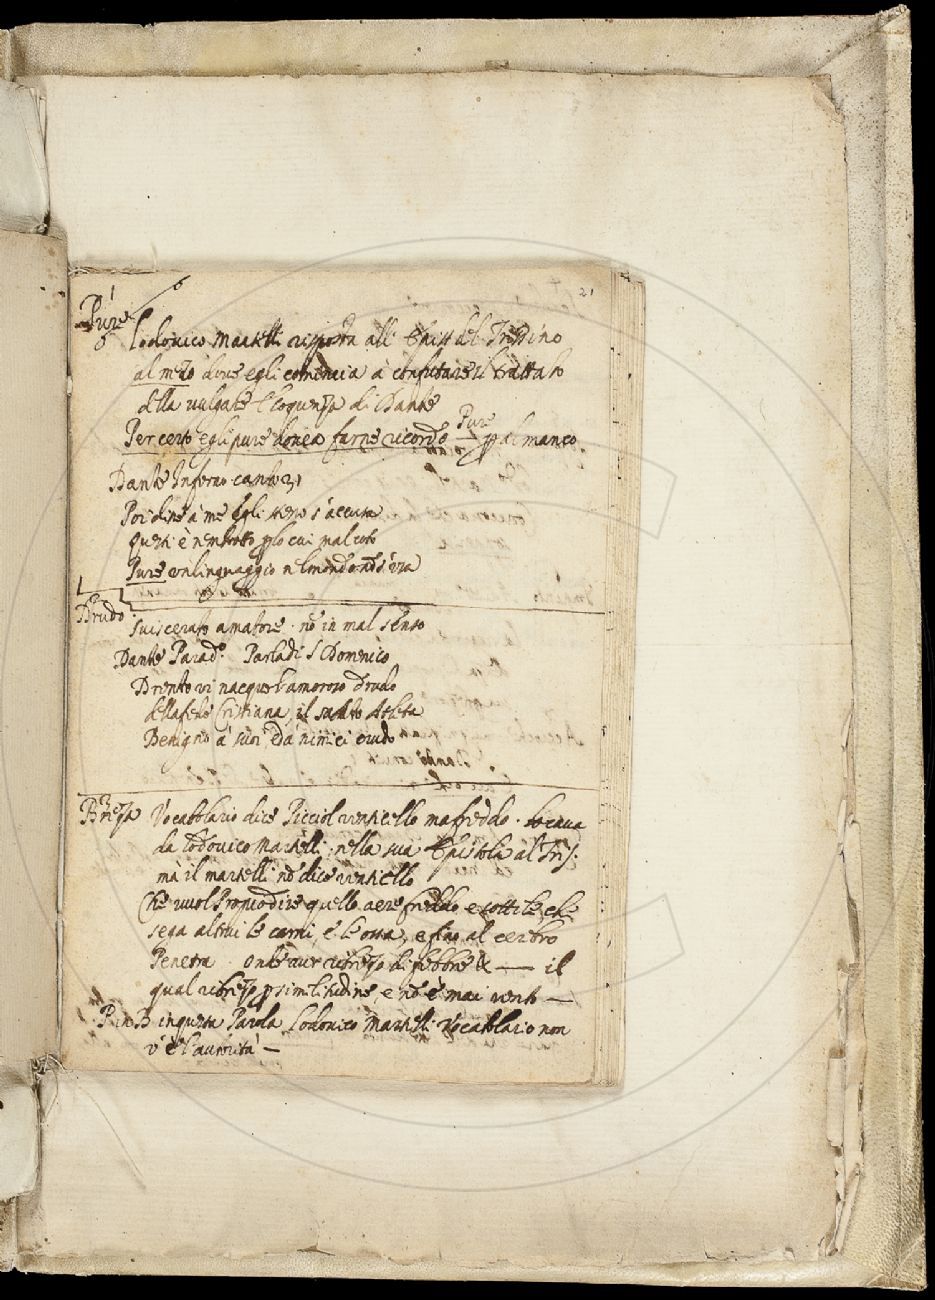 21
Pure
Lodovico Martelli risposta all' Epist del Trissino
al mezo dove egli comincia à confutare il trattato
della vulgare Eloquenza di Dante
Per certo egli pure dovea farne ricordo Pure p al manco
Dante Inferno canto 31
Poi disse à me Egli stesso s'accusa
questi è nembrotto plo cui mal coto
Pure un linguaggio nel mondo nō s'usa
Drudo
suiscerato amatore. nō in mal senso
Dante Parad.º Parla di S Domenico
Drento vi nacque l'amoroso drudo
della fede Cristiana, il santo Atleta
Benigno à suoi, ed à nimici crudo
Brezza Vocabblario dice Picciol venticello ma freddo.
da Lodovico Martelli, nella sua Epistola al Tris:
mà il martelli nō dice venticello
Che vuol Propio dire quello aere freddo e sottile, che
sega altrui le carni, e le ossa, e fino al cerbro
Penetra. onde aver ribrezo di febbre & — il
qual ribrezo p similitudine, e nō è mai vento —
R in B in questa Parola Lodovico Martelli Vocabblario non
v'è l'autorità —